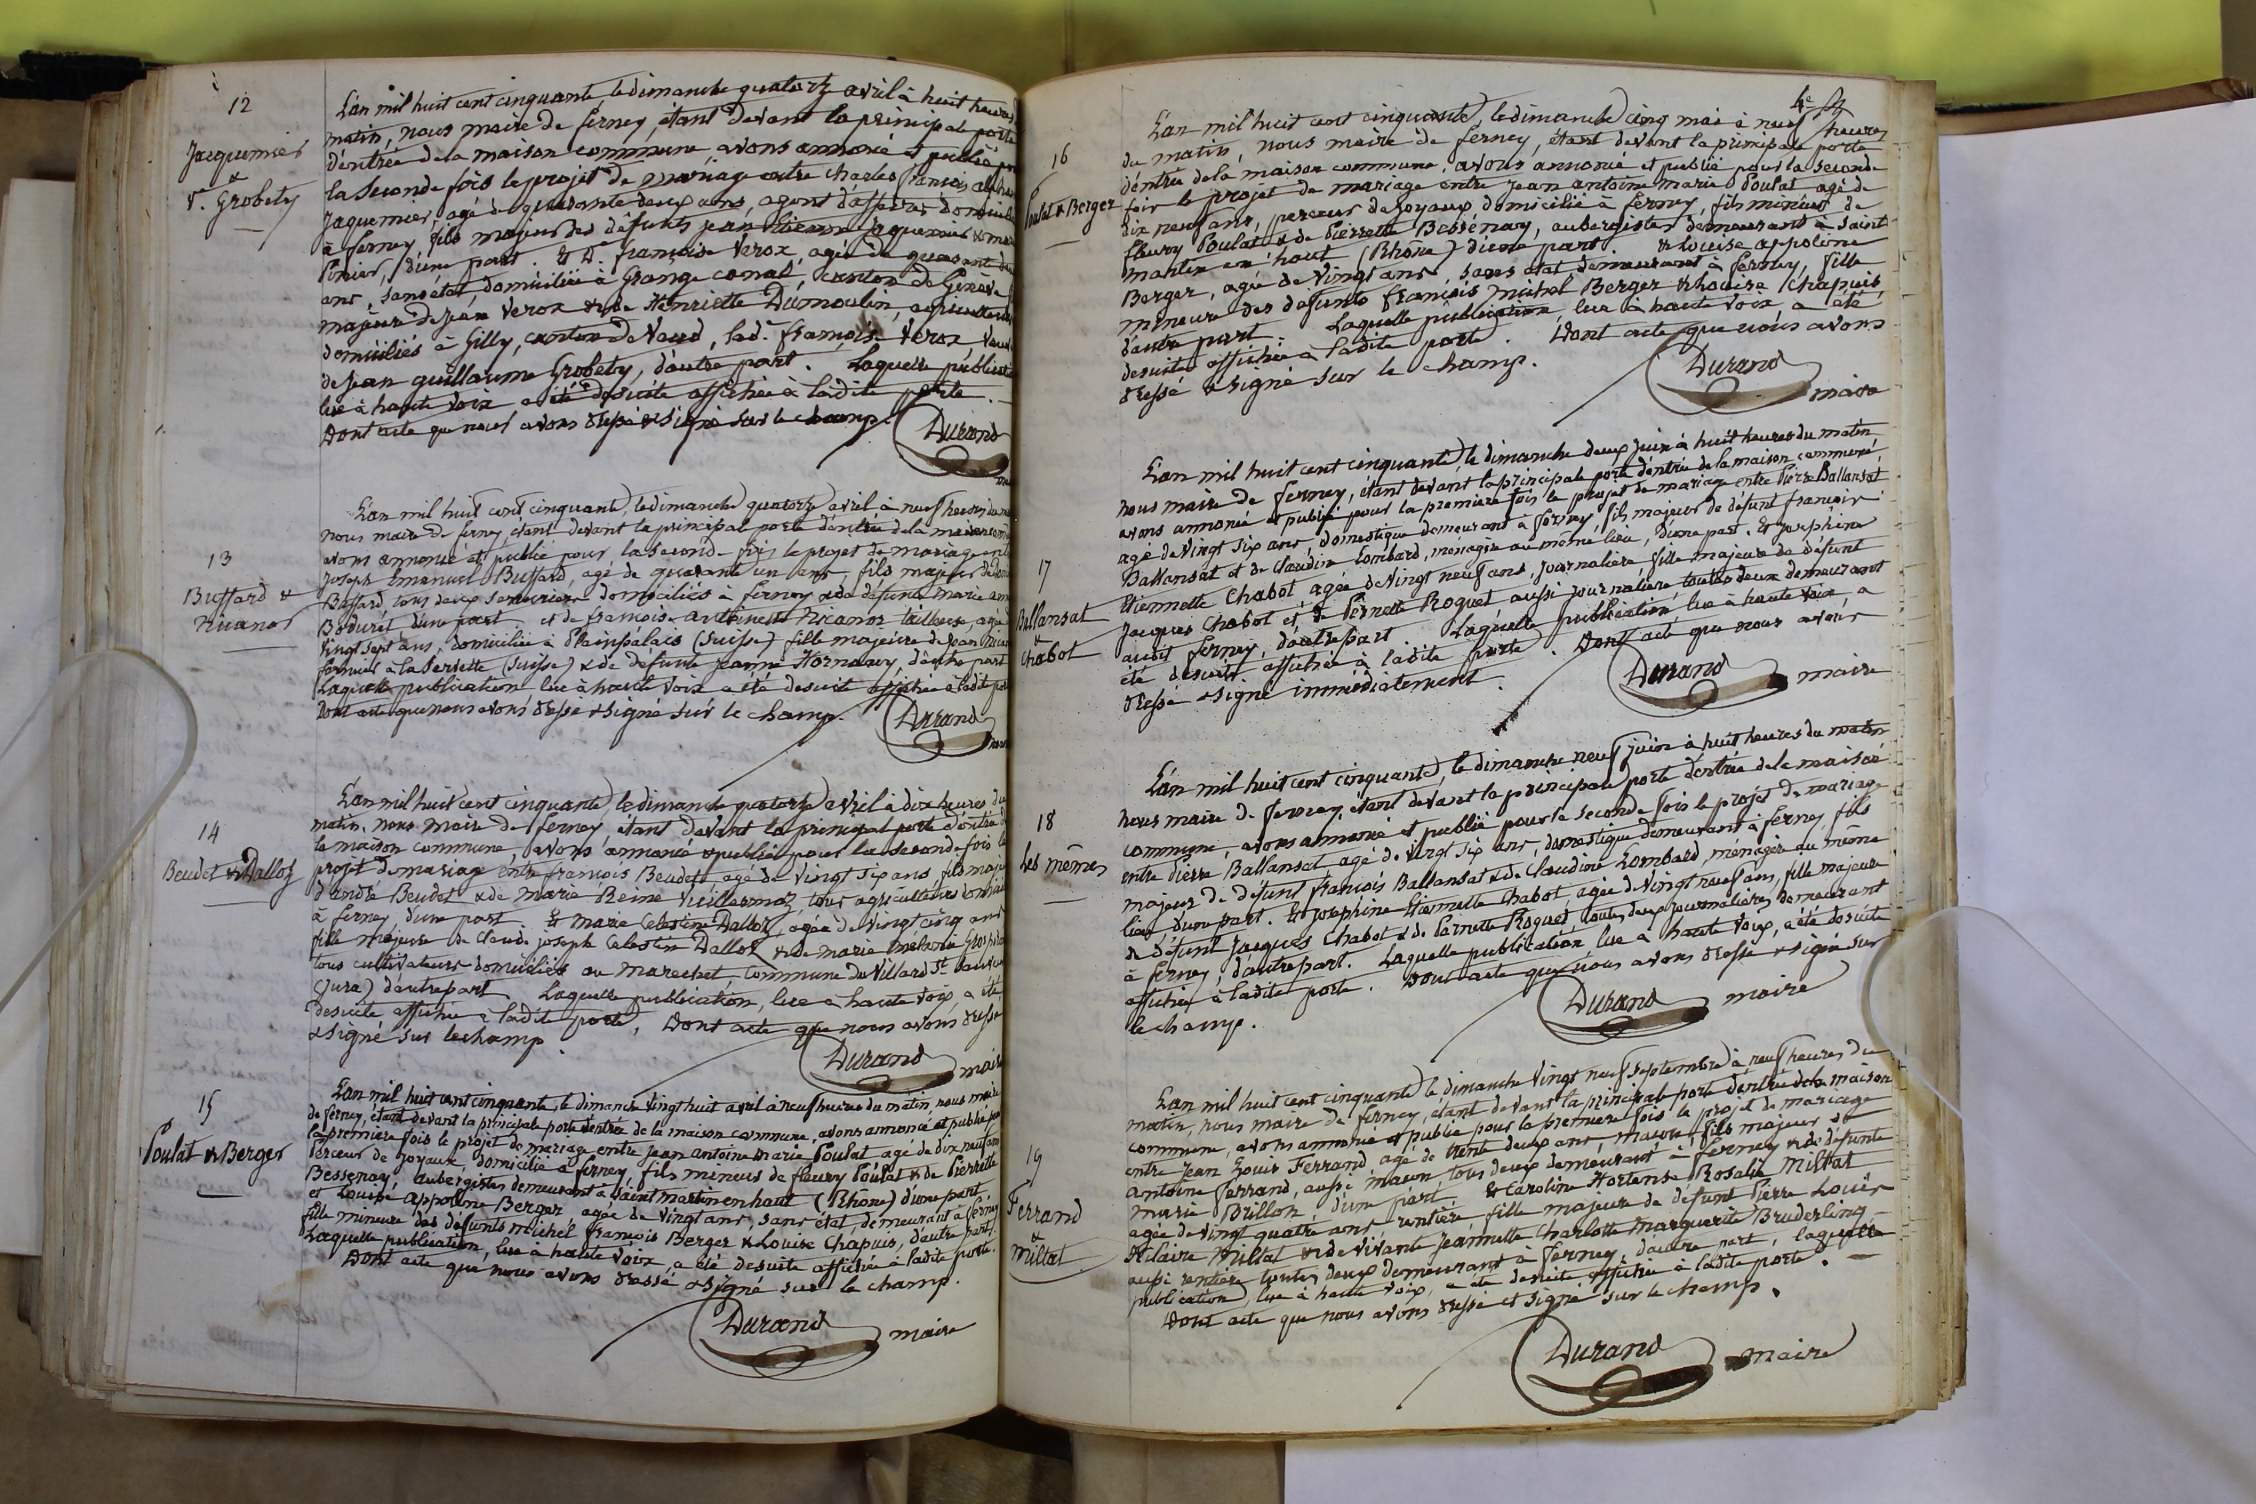 12
Jacquemier
&
Ve. Grobety
L'an mil huit cent cinquante, le dimanche quatorze avril à huit heures
matin, nous maire de ferney, étant devant la principale porte
d'entrée de la maison commune, avons annoncé et publié pour
la seconde fois le projet de mariage entre Charles françois
Jaquemier, agé de quarante deux ans, agent d'affaires domicilié
à ferney, fils majeur des défunts jean Etienne Jaquemier &
Pinier, d'une part. Et De. françoise Verox, agée de quarante
ans, sans état, domiciliée à Grange canal, canton de Genève
majeure de Jean Verox & de Henriette Dumoulin, agriculteurs
domiciliés à Gilly, canton de Vaud, lad. françoise Verox veuve
de Jean guillaume Grobety, d'autre part. Laquelle publication
lue à haute voix a été desuite affichée à ladite porte.
Dont acte que nous avons dressé & signé sur le champ.
Durand
13
Buffard &
Nicanor
L'an mil huit cent cinquante, le dimanche quatorze avril à neuf heures du
nous maire de ferney, étant devant la principal porte d'entrée de la maison
avons annoncé et publié pour la seconde fois le projet de mariage
Joseph Emanuel Buffard, agé de quarante un ans, fils majeur de
Buffard, tous deux serruriers domiciliés à ferney & de défunte marie
Boduret d'une part. et de françoise Nicanor tailleuse, agée
vingt sept ans, domiciliée à Plainpalais (Suisse) fille majeure de Jean
fermier à la Servette (Suisse) & de defunte jeanne Hornawy, d'autre part
Laquelle publication lue à haute voix a été desuite affichée à ladite
Dont acte que nous avons dressé & signé sur le champ.
Durand
14
Beudet & Dalloz
L'an mil huit cent cinquante, le dimanche quatorze avril à dix heures du
matin, nous maire de ferney, étant devant la principal porte d'entrée
la maison commune, avons annoncé & publié pour la seconde fois le
projet de mariage entre françois Beudet agé de vingt six ans, fils
d'andré Beudet & de marie Reine Vuillermoz, tous agriculteurs
à ferney, d'une part. Et marie Celestine Dalloz, agée de vingt cinq ans
fille majeure de Claude joseph Celestin Dalloz & de marie melanie
tous cultivateurs domiciliés au marechet, commune du Villard St.
(Jura) d'autre part. Laquelle publication, lue à haute voix, a été
desuite affichée à ladite porte. Dont acte que nous avons dressé
& signé sur le champ.
Durand
15
Poulat & Berger
L'an mil huit cent cinquante, le dimanche vingt huit avril à neuf heures du matin, nous maire
de ferney, étant devant la principale porte d'entrée de la maison commune, avons annoncé et publié
la première fois le projet de mariage entre jean antoine marie Poulat agé de dix neuf ans
Perceur de joyaux, domicilié à ferney, fils mineur de fleury Poulat & de Pierrette
Bessenay, aubergistes demeurant à saint martin en haut (Rhône) d'une part
et Louise appoline Berger agée de vingt ans, sans état, demeurant à ferney
fille mineure des défunts michel françois Berger & Louise Chapuis, d'autre part.
Laquelle publication, lue à haute voix, a été desuite affichée à ladite porte.
Dont acte que nous avons dressé & signé sur le champ.
Durand maire
4e
16
Poulat & Berger
L'an mil huit cent cinquante, le dimanche cinq mai à neuf heures
du matin, nous maire de ferney, étant devant la principale porte
d'entrée de la maison commune, avons annoncé et publié pour la seconde
fois le projet de mariage entre jean antoine marie Poulat agé de
dix neuf ans, perceur de joyaux domicilié à ferney, fils mineur de
fleury Poulat & de Pierrette Bessénay, aubergistes demeurant à saint
martin en haut (Rhône) d'une part. & Louise appoline
Berger, agée de vingt ans, sans état demeurant à ferney, fille
mineure des defunts françois michel Berger & Louise Chapuis,
d'autre part. Laquelle publication, lue à haute voix, a été
desuite affichée à ladite porte. Dont acte que nous avons
dressé & signé sur le champ.
Durand maire
17
Ballansat
&
Chabot
L'an mil huit cent cinquante, le dimanche deux juin à huit heures du matin
nous maire de ferney, étant devant la principale porte d'entrée de la maison commune,
avons annoncé et publié pour la premiere fois le projet de mariage entre Pierre Ballansat
agé de vingt six ans, domestique demeurant à ferney, fils majeur de défunt françois
Ballansat et de Claudine Lombard, ménagère au même lieu, d'une part. Et Josephine
Etiennette Chabot agée de vingt neuf ans, journalière, fille majeure de défunt
Jacques Chabot et de Pernette Roguet aussi journalière, toutes deux demeurant
audit ferney, d'autre part. Laquelle publication lue à haute voix a
été desuite affichée à ladite porte. Dont acte que nous avons
dressé & signé immédiatement.
Durand maire
18
Les mêmes
L'an mil huit cent cinquante, le dimanche neuf juin à huit heures du matin
nous maire de ferney, étant devant la principale porte d'entrée de la maison
commune, avons annoncé et publié pour la seconde fois le projet de mariage
entre Pierre Ballansat agé de vingt six ans, domestique demeurant à ferney, fils
majeur de défunt françois Ballansat & de Claudine Lombard, ménagère au même
lieu d'une part. Et Josephine Etiennette Chabot, agée de vingt neuf ans, fille majeure
de défunt Jacques Chabot & de Pernette Roguet toutes deux journalières demeurant
à ferney, d'autre part. Laquelle publication lue à haute voix, a été desuite
affichée à ladite porte. Dont acte que nous avons dressé & signé sur
le champ.
Durand maire
19
Ferrand
&
Miltat
L'an mil huit cent cinquante, le dimanche vingt neuf septembre à neuf heures du
matin, nous maire de ferney, étant devant la principale porte d'entrée de la maison
commune, avons annoncé et publié pour la premiere fois le projet de mariage
entre Jean Louis Ferrand, agé de trente deux ans maçon, fils majeur de
antoine Ferrand, aussi maçon, tous deux demeurant à ferney & de défunte
marie Brillon d'une part. Et Caroline Hortense Rosalie Miltat
agée de vingt quatre ans rentière fille majeure de défunt Pierre Louis
Hilaire Miltat & de vivante Jeannette Charlotte Marguerite Bruderling
aussi rentière, toutes deux demeurant à ferney, d'autre part, laquelle
publication, lue à haute voix, a été desuite affichée à ladite porte.
Dont acte que nous avons dressé et signé sur le champ.
Durand maire